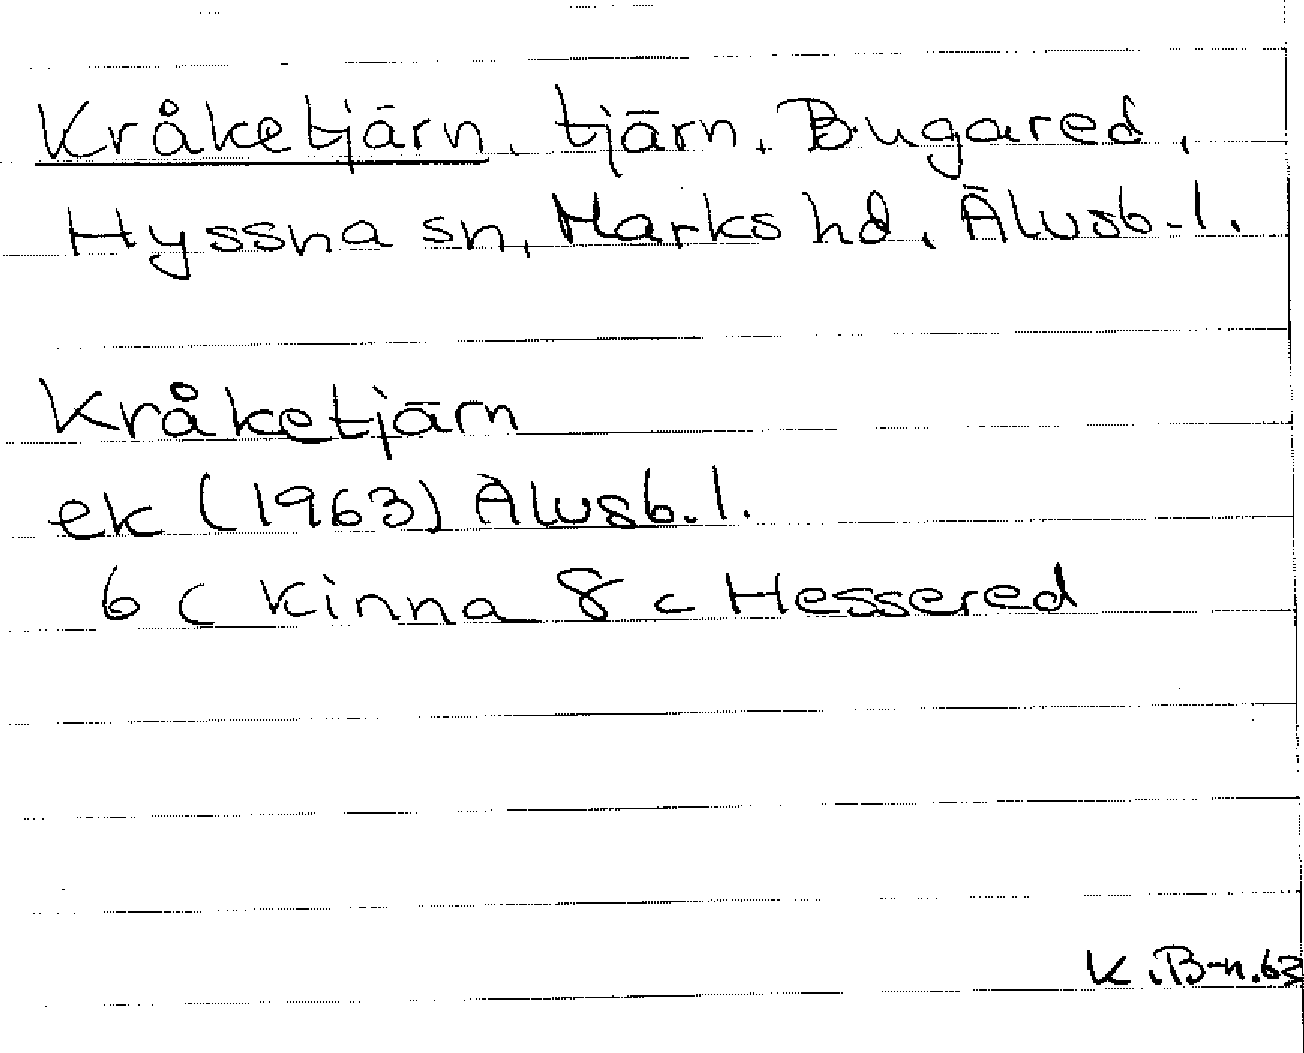 Kråketjärn, tjärn, Bugared,
Hyssna sn, Marks hd, Älvsb.l.
Kråketjärn
ek (1963) Älvsb.l.
6 C Kinna 8 c Hessered
K.B-n.63